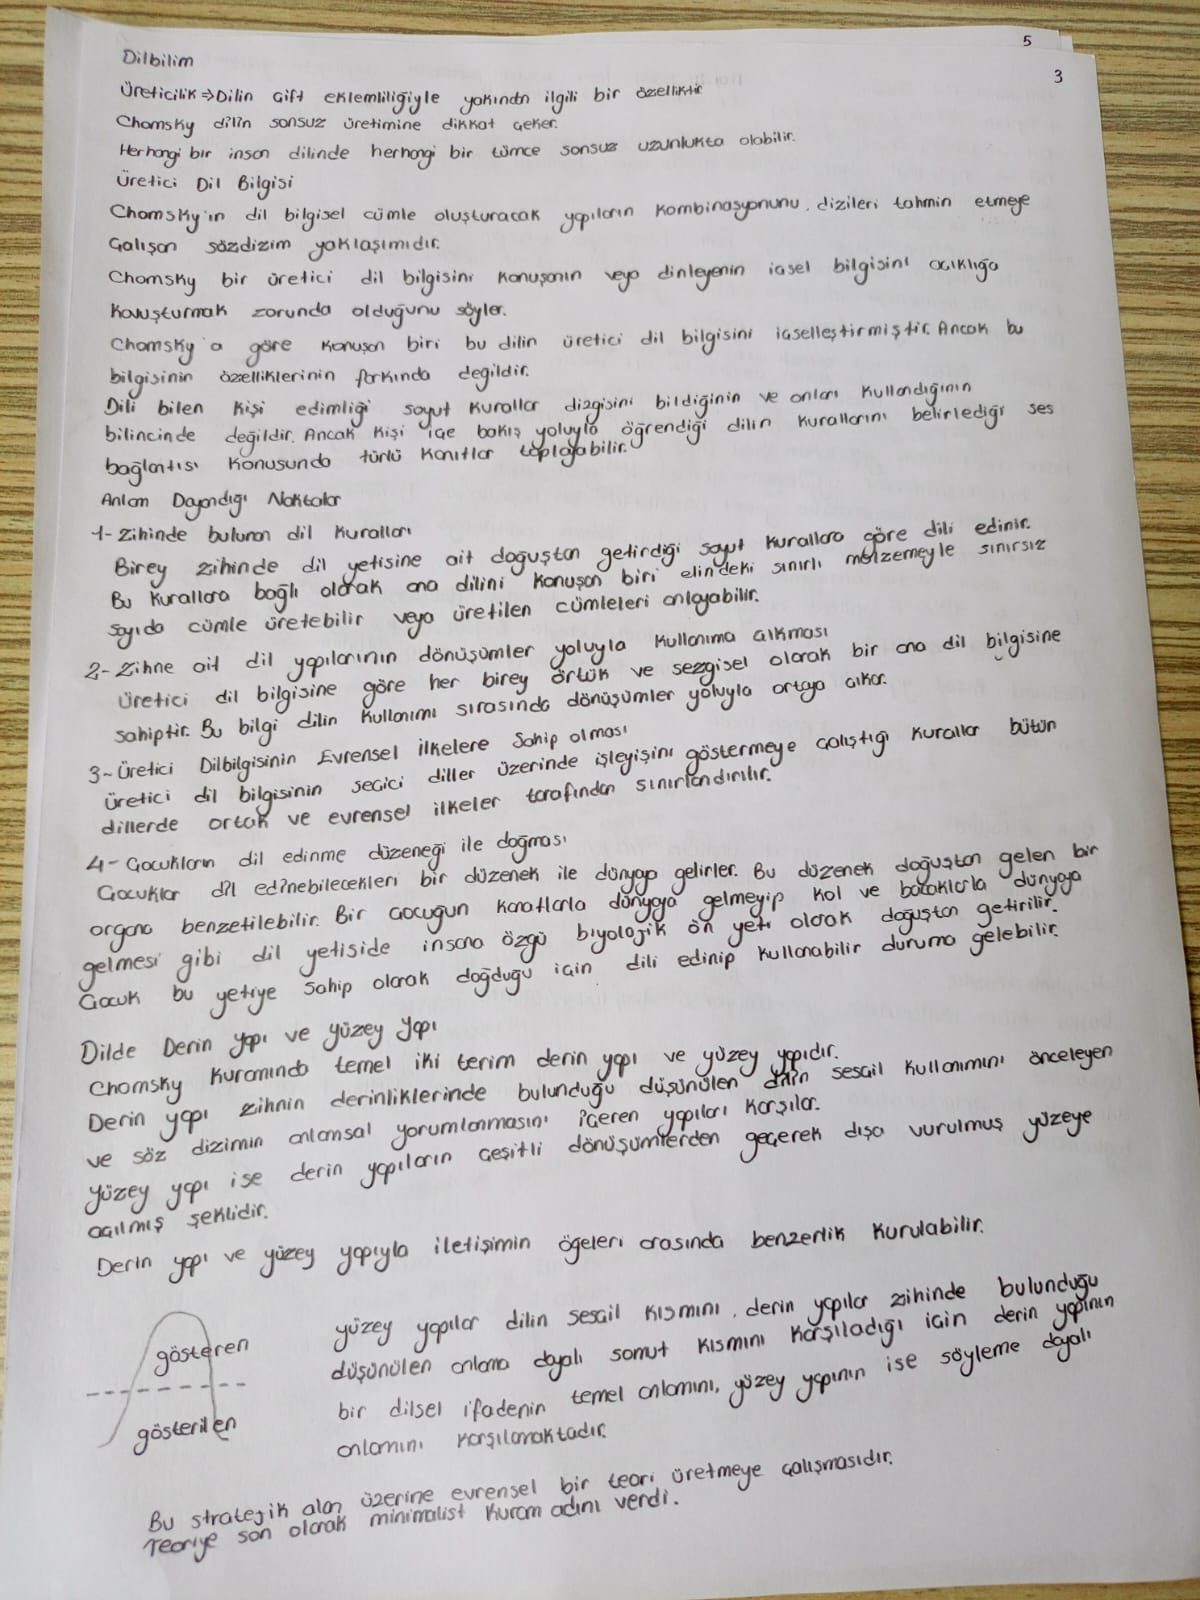 5
3
Dilbilim
Üreticilik⇒Dilin Çift eklemliliğiyle yakından ilgili bir özelliktir
Chomsky dilin sonsuz üretimine dikkat çeker.
Herhangi bir insan dilinde herhangi bir tümce sonsuz uzunlukta olabilir.
Üretici Dil Bilgisi
Chomsky'in dil bilgisel cümle oluşturacak yapıların kombinasyonunu, dizileri tahmin etmeye
Çalışan sözdizim yaklaşımıdır.
Chomsky bir üretici dil bilgisini konuşanın veya dinleyenin içsel bilgisini açıklığa
kavuşturmak zorunda olduğunu söyler.
Chomsky'a göre konuşan biri bu dilin üretici dil bilgisini içselleştirmiştir. Ancak bu
bilgisinin özelliklerinin farkında değildir.
Dili bilen kişi edimliği soyut kurallar dizgisini bildiğinin ve onları kullandığının
bilincinde değildir. Ancak kişi içe bakış yoluyla öğrendiği dilin kurallarını belirlediği ses
bağlantısı konusunda türlü kanıtlar toplayabilir.
Anlam Dayandığı Noktalar
1- Zihinde bulunan dil kuralları
Birey zihinde dil yetisine ait doğuştan getirdiği soyut kurallara göre dili edinir.
Bu kurallara bağlı olarak ana dilini konuşan biri elindeki sınırlı malzemeyle sınırsız
sayıda cümle üretebilir veya üretilen cümleleri anlayabilir.
2- Zihne ait dil yapılarının dönüşümler yoluyla kullanıma çıkması
Üretici dil bilgisine göre her birey örtük ve sezgisel olarak bir ana dil bilgisine
sahiptir. Bu bilgi dilin kullanımı sırasında dönüşümler yoluyla ortaya çıkar.
3- Üretici Dilbilgisinin Evrensel İlkelere Sahip olması
Üretici dil bilgisinin seçici diller üzerinde işleyişini göstermeye çalıştığı kurallar bütün
dillerde ortak ve evrensel ilkeler tarafından sınırlandırılır.
4- Çocukların dil edinme düzeneği ile doğması
Çocuklar dil edinebilecekleri bir düzenek ile dünyaya gelirler. Bu düzenek doğuştan gelen bir
organa benzetilebilir. Bir çocuğun kanatlarla dünyaya gelmeyip kol ve bacaklarla dünyaya
gelmesi gibi dil yetiside insana özgü biyolojik ön yeti olarak doğuştan getirilir.
Çocuk bu yetiye sahip olarak doğduğu için dili edinip kullanabilir duruma gelebilir.
Dilde Derin yapı ve yüzey yapı
Chomsky kuramında temel iki terim derin yapı ve yüzey yapıdır.
Derin yapı zihnin derinliklerinde bulunduğu düşünülen dilin sesçil kullanımını önceleyen
ve söz dizimin anlamsal yorumlanmasını içeren yapıları karşılar.
Yüzey yapı ise derin yapıların çeşitli dönüşümlerden geçerek dışa vurulmuş yüzeye
açılmış şeklidir.
Derin yapı ve yüzey yapıyla iletişimin ögeleri arasında benzerlik kurulabilir.
gösteren
gösterilen
yüzey yapılar dilin sesçil kısmını, derin yapılar zihinde bulunduğu
düşünülen anlama dayalı somut kısmını karşıladığı için derin yapının
bir dilsel ifadenin temel anlamını, yüzey yapının ise söyleme dayalı
anlamını karşılamaktadır.
Bu stratejik alan üzerine evrensel bir teori üretmeye çalışmasıdır.
Teoriye son olarak minimalist kuram adını verdi.